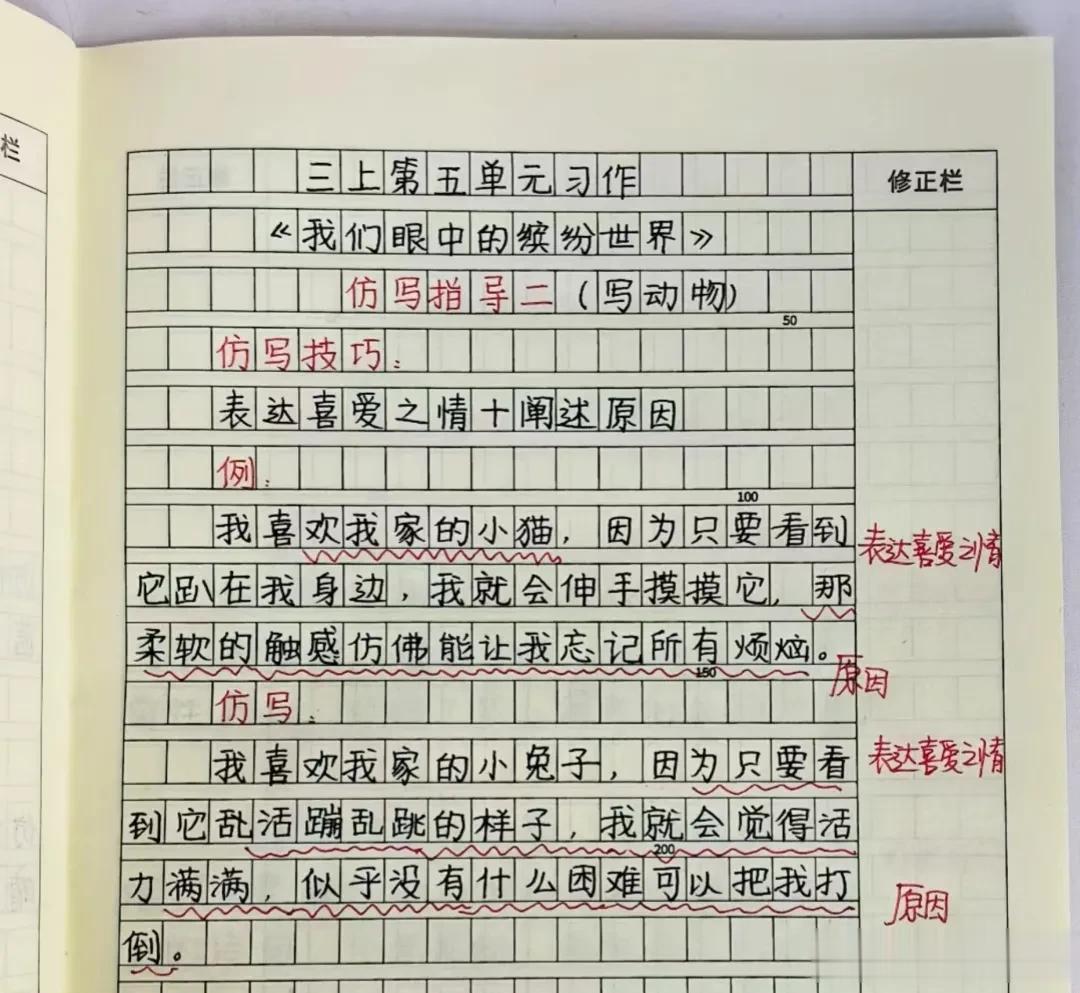 栏
三上第五单元习作
修正栏
《我们眼中的缤纷世界》
仿写指导二（写动物）
50
仿写技巧：
表达喜爱之情十阐述原因
例：
100
我喜欢我家的小猫，因为只要看到
表达喜爱之情
它趴在我身边，我就会伸手摸摸它，那
柔软的触感仿佛能让我忘记所有烦恼。
150
原因
仿写：
我喜欢我家的小兔子，因为只要看
表达喜爱之情
到它乱活蹦乱跳的样子，我就会觉得活
200
力满满，似乎没有什么困难可以把我打
原因
倒。